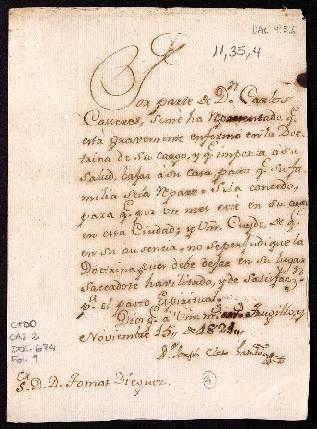 DAC 9:5.6
11,35,4
Por parte de D.n Carlos
Casseres, se me ha representado, q.e
está gravemente enfermo en la Doc-
trina de su cargo, y q.e importa á su
salud, bajar á su casa, para q.e su fa-
milia se la repare. Se la concedo,
para q.e por un mes esté en su casa
en esta Ciudad; y Vm. Cuyde, de q.e
en su ausencia, no se perjudique la
Doctrina, q.e debe dejar en su lugar
Sacerdote havilitado, y de satisfac.n
p.a el pasto Espiritual.
Dios g.e á Vm. m.s a.s Trugillo, y
Noviembre 15, de 1821
CTDO
CAE 2
DOC. 674
FOL. 1
S. D. D. Tomas Dieguez
4